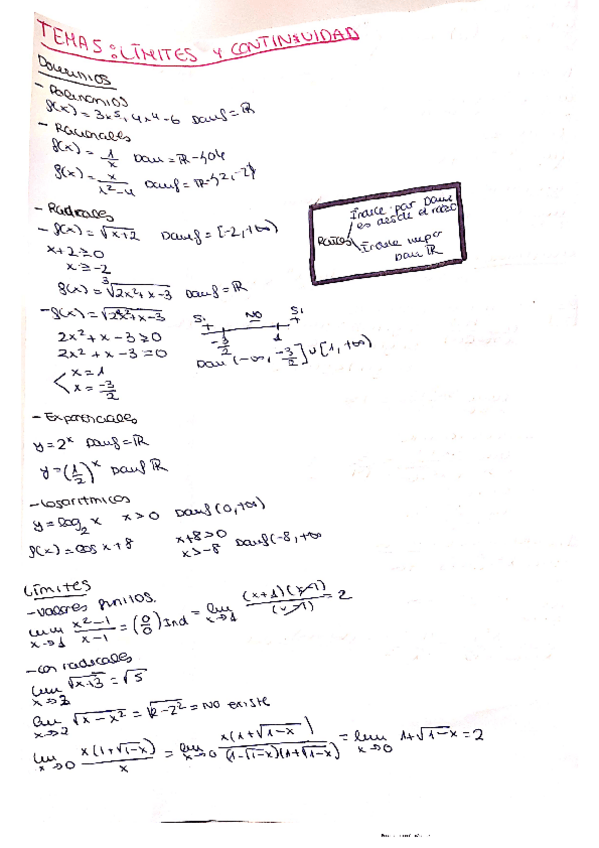 TEMA 5: LÍMITES Y CONTINUIDAD
Dominios
- Polinomios
f(x) = 3x⁵ + 4x⁴ - 6 Dom f = ℝ
- Racionales
f(x) = 1/x Dom = ℝ - {0}
f(x) = x/(x² - 4) Dom f = ℝ - {2, -2}
- Radicales
- f(x) = √(x+2) Dom f = [-2, +∞)
x + 2 ≥ 0
x ≥ -2
Raíces
Índice par Dom
es desde el
Índice impar
Dom ℝ
f(x) = ³√(2x² + x - 3) Dom f = ℝ
- f(x) = √(2x² + x - 3)
Si NO Si
+ +
-3/2 1
2x² + x - 3 ≥ 0
2x² + x - 3 = 0
Dom (-∞, -3/2] ∪ [1, +∞)
x = 1
x = -3/2
- Exponenciales
y = 2ˣ Dom f = ℝ
y = (1/2)ˣ Dom f ℝ
- Logarítmicos
y = log₂ x x > 0 Dom f (0, +∞)
f(x) = log x + 8 x + 8 > 0 Dom f (-8, +∞
x > -8
Límites
- Valores finitos.
lim x→1 (x² - 1)/(x - 1) = (0/0) Ind = lim x→1 (x+1)(x-1)/(x-1) = 2
- Con radicales
lim x→2 √(x+3) = √5
lim x→2 √(x - x²) = √(2 - 2²) = No existe
lim x→0 x(1+√(1-x))/x = lim x→0 x(1+√(1-x))/((1-√(1-x))(1+√(1-x))) = lim x→0 1+√(1-x) = 2